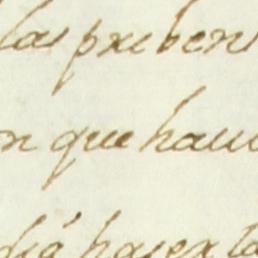 las preben
n que hau
dia hazer la